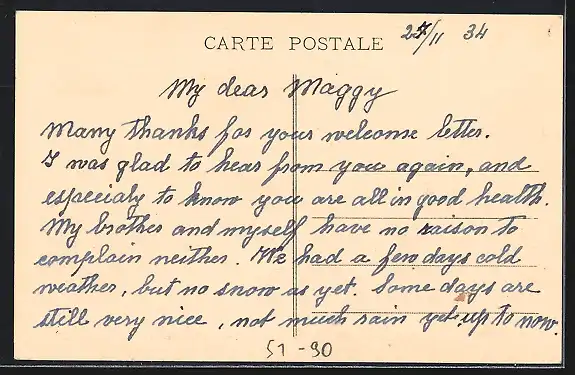 CARTE POSTALE
27/11 34
My dear Maggy
Many thanks for your welcome letter.
I was glad to hear from you again, and
especialy to know you are all in good health.
My brother and myself have no raison to
complain neither. We had a few days cold
weather, but no snow as yet. Some days are
still very nice, not much rain yet up to now.
51-90